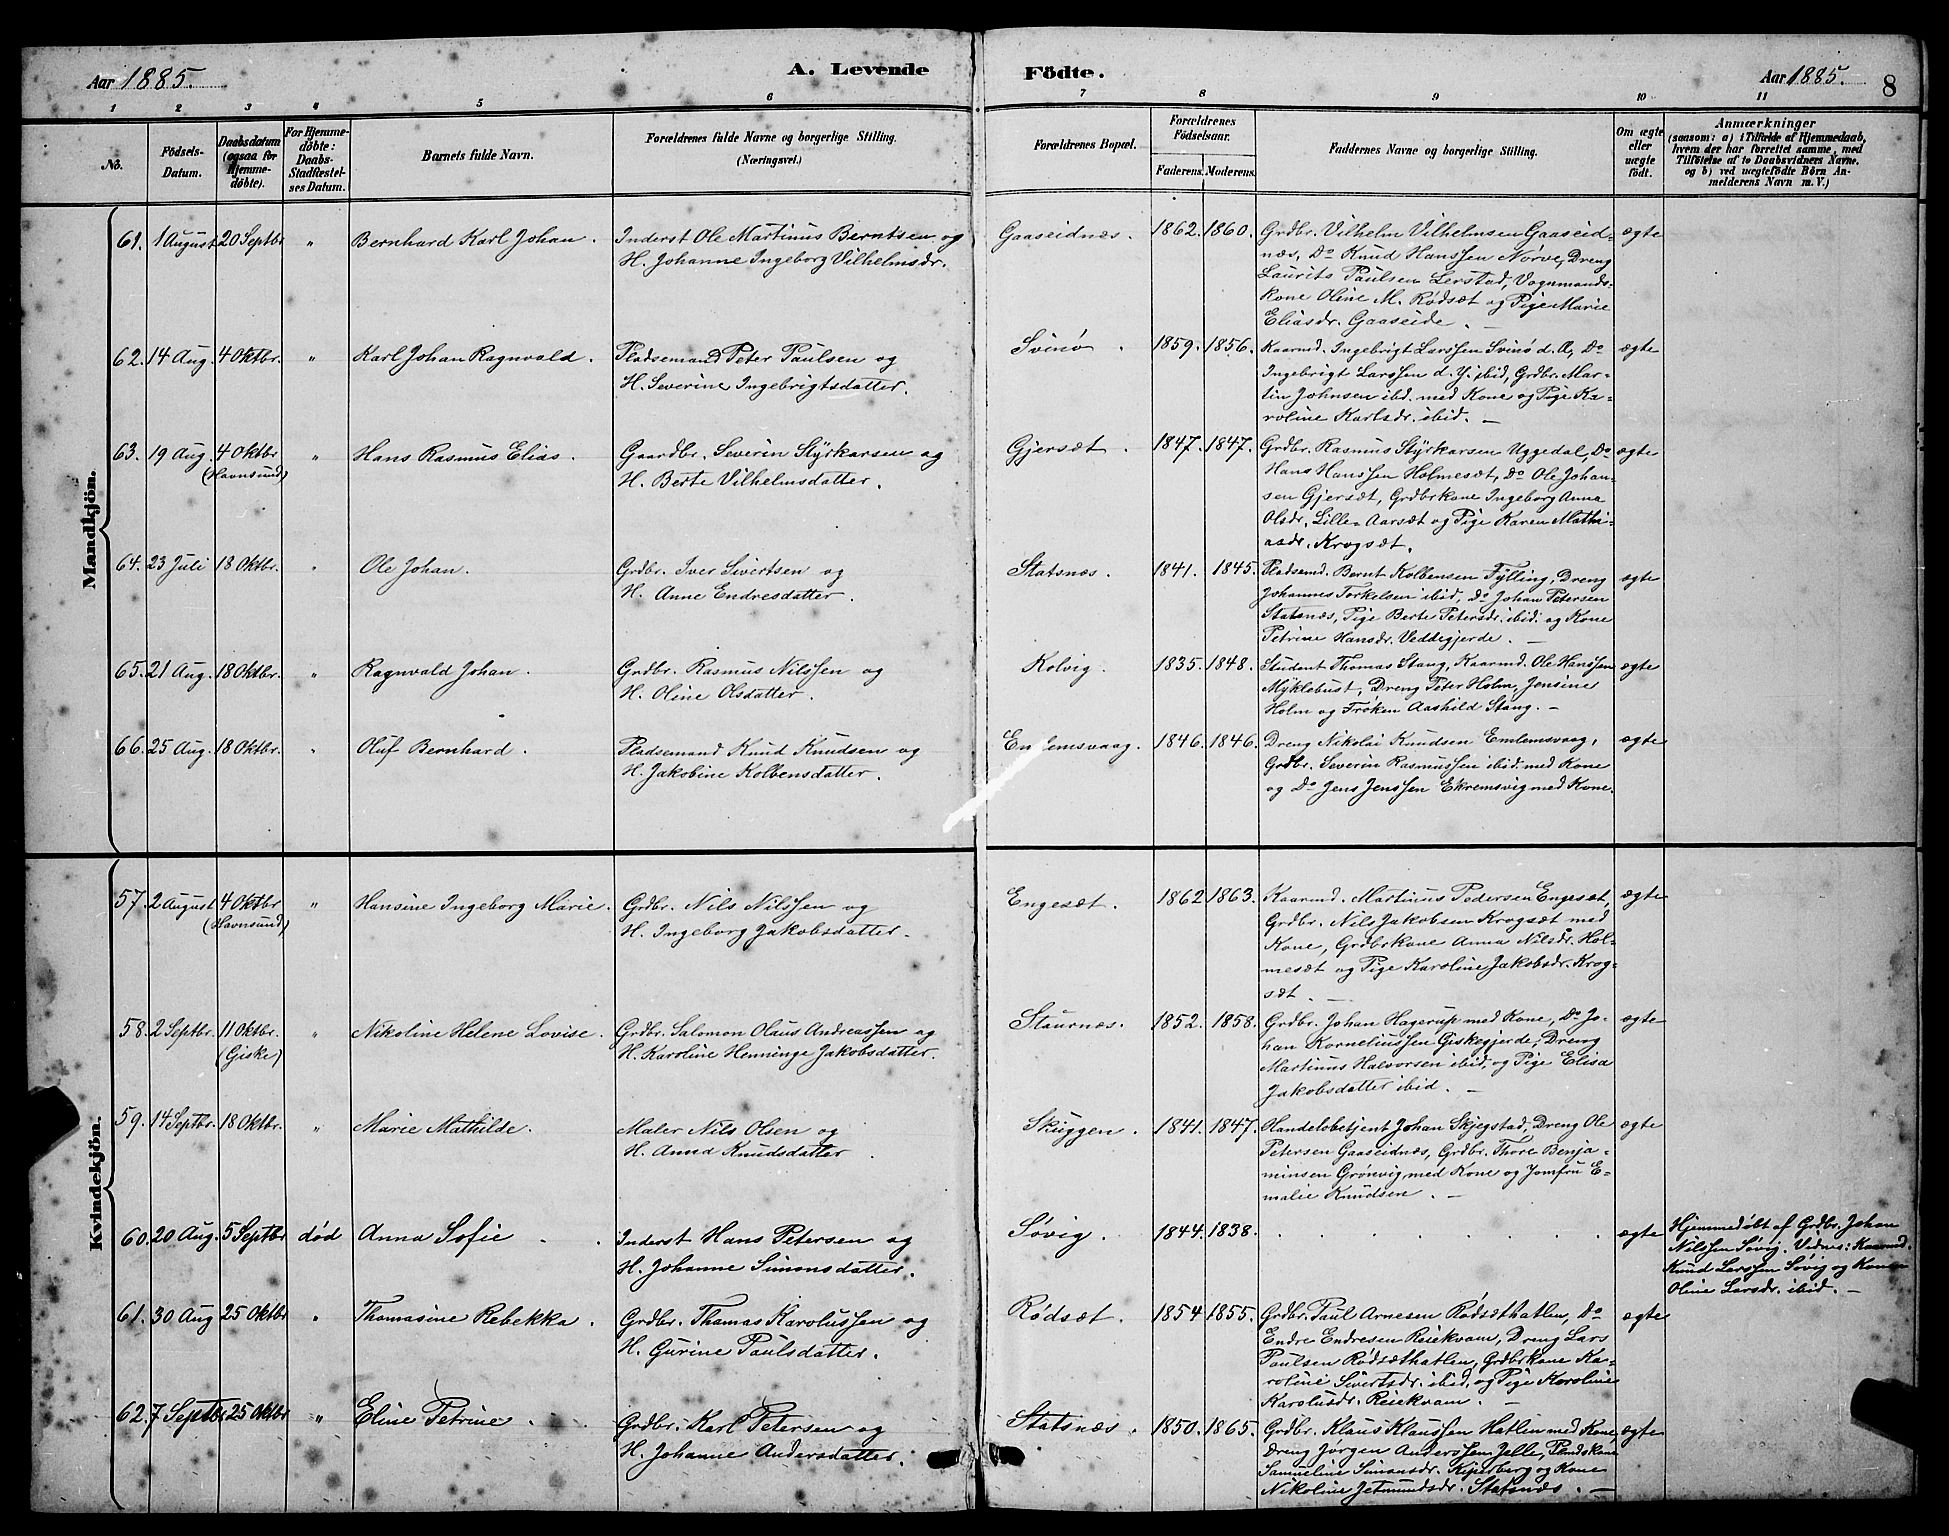 Aar 1885.
A. Levende
Födte.
Aar 1885.
8
1 2 3 4 5 6 7 8 9 10 11
No.
Födsels-
Datum.
Daabsdatum
(ogsaa för
Hjemme-
döbte).
For Hjemme-
döbte:
Daabs-
Stadfæstel-
ses Datum.
Barnets fulde Navn.
Forældrenes fulde Navne og borgerlige Stilling.
(Næringsvei.)
Forældrenes Bopæl.
Forældrenes
Födselsaar.
Faderens. Moderens.
Faddernes Navne og borgerlige Stilling.
Om ægte
eller
uægte
födt.
Anmærkninger
(saasom: a) i Tilfælde af Hjemmedaab,
hvem der har forrettet samme, med
Tilföielse af to Daabsvidners Navne.
og b) ved uægtefödte Börn An-
melderens Navn m. V.)
Mandkjön.
61. 1 August 20 Septbr " Bernhard Karl Johan. Inderst Ole Martinus Berntsen og
H. Johanne Ingeborg Vilhelmsdr.
Gaaseidnæs. 1862. 1860. Grdbr. Vilhelm Vilhelmsen Gaaseid- ægte
næs, Do Knud Hanssen Nørve, Dreng
Laurits Paulsen Lerstad, Vognmands-
kone Oline M. Rødsæt og Pige Marie
Eliasdr. Gaaseide. –
62. 14 Aug. 4 Oktbr. " Karl Johan Ragnvald. Pladsemand Peter Paulsen og
H. Severine Ingebrigtsdatter.
Svinø. 1859. 1856. Kaarmd. Ingebrigt Larssen Svinø d. Æ, Do ægte
Ingebrigt Larssen d. Y. ibid, Grdbr. Mar-
tin Johnsen ibid. med Kone og Pige Ka-
roline Karlsdr. ibid. –
63. 19 Aug. 4 Oktbr " Hans Rasmus Elias. Gaardbr. Severin Styrkarsen og
(Havnsund)
H. Berte Vilhelmsdatter.
Gjersæt. 1847. 1847. Grdbr. Rasmus Styrkarsen Uggedal, Do ægte
Hans Hanssen Holmesæt, Do Ole Johan-
sen Gjersæt, Grdbrkone Ingeborg Anna
Olsdr. Lille-Aarsæt og Pige Karen Mathi-
asdr. Krogsæt.
64. 23 Juli 18 Oktbr. " Ole Johan. Grdbr. Iver Sivertsen og
H. Anne Endresdatter.
Statsnæs. 1841. 1845. Pladsemd. Bernt Kolbensen Fylling, Dreng ægte
Johannes Torkelsen ibid, Do Johan Petersen
Statsnæs, Pige Berte Petersdr. ibid. og Kone
Petrine Hansdr. Veddegjerde. –
65. 21 Aug. 18 Oktbr. " Ragnvald Johan. Grdbr. Rasmus Nilssen og
H. Oline Olsdatter.
Kolvig. 1835. 1848. Student Thomas Stang, Kaarmd. Ole Hanssen ægte
Myklebust, Dreng Peter Holm, Jensine
Holm og Frøken Aashild Stang. –
66. 25 Aug. 18 Oktbr. " Oluf Bernhard. Pladsemand Knud Knudsen og
H. Jakobine Kolbensdatter.
Emlemsvaag. 1846. 1846. Dreng Nikolai Knudsen Emlemsvaag, ægte
Grdbr. Severin Rasmussen ibid. med Kone
og Do Jens Jenssen Ekremsvig med Kone.
Kvindekjön.
57. 2 August 4 Oktbr " Hansine Ingeborg Marie. Grdbr. Nils Nilssen og
(Havnsund)
H. Ingeborg Jakobsdatter.
Engesæt. 1862 1863. Kaarmd. Martinus Pedersen Engesæt, ægte
Grdbr. Nils Jakobsen Krogsæt med
Kone, Grdbrkone Anna Nilsdr. Hol-
mesæt og Pige Karoline Jakobsdr. Krog-
sæt. –
58. 2 Septbr. 11 Oktbr. " Nikoline Helene Lovise. Grdbr. Salomon Olaus Andreassen og
(Giske)
H. Karoline Henninge Jakobsdatter.
Staurnæs. 1852. 1858. Grdbr. Johan Hagerup med Kone, Do Jo- ægte
han Korneliussen Giskegjerde, Dreng
Martinus Halvorsen ibid, og Pige Elisa
Jakobsdatter ibid. –
59. 14 Septbr. 18 Oktbr. " Marie Mathilde. Maler Nils Olsen og
H. Anna Knudsdatter.
Skuggen. 1841. 1847. Handelsbetjent Johan Skjegstad, Dreng Ole ægte
Petersen Gaaseidnæs, Grdbr. Thore Benja-
minsen Grønvig, med Kone og Jomfru E-
malie Knudsen. –
60. 20 Aug. 5 Septbr død Anna Sofie. Inderst Hans Petersen og
H. Johanne Simonsdatter.
Søvig. 1844. 1838. ægte
Hjemmedøbt af Grdbr. Johan
Nilssen Søvig. Vidnes: Kaarmd.
Knud Larssen Søvig og Kone
Oline Larsdr. ibid. –
61. 30 Aug 25 Oktbr " Thomasine Rebekka. Grdbr. Thomas Karolussen og
H. Gurine Paulsdatter.
Rødsæt. 1854 1855. Grdbr. Paul Arnesen Rødsæthatlen, Do ægte
Endre Endresen Reiekvam, Dreng Lars
Paulsen Rødsæthatlen, Grdbrkone Ka-
roline Sivertsdr. ibid, og Pige Karoline
Karolusdr. Reiekvam. –
62. 7 Septbr 25 Oktbr " Eline Petrine. Grdbr. Karl Petersen og
H. Johanne Andersdatter.
Statsnæs. 1850. 1865. Grdbr. Klaus Klaussen Hatlen med Kone ægte
Dreng Jørgen Anderssen Jelle, Pladskone
Samueline Simonsdr. Kiperberg og Kone
Nikoline Jetmundsdr. Statsnæs. –